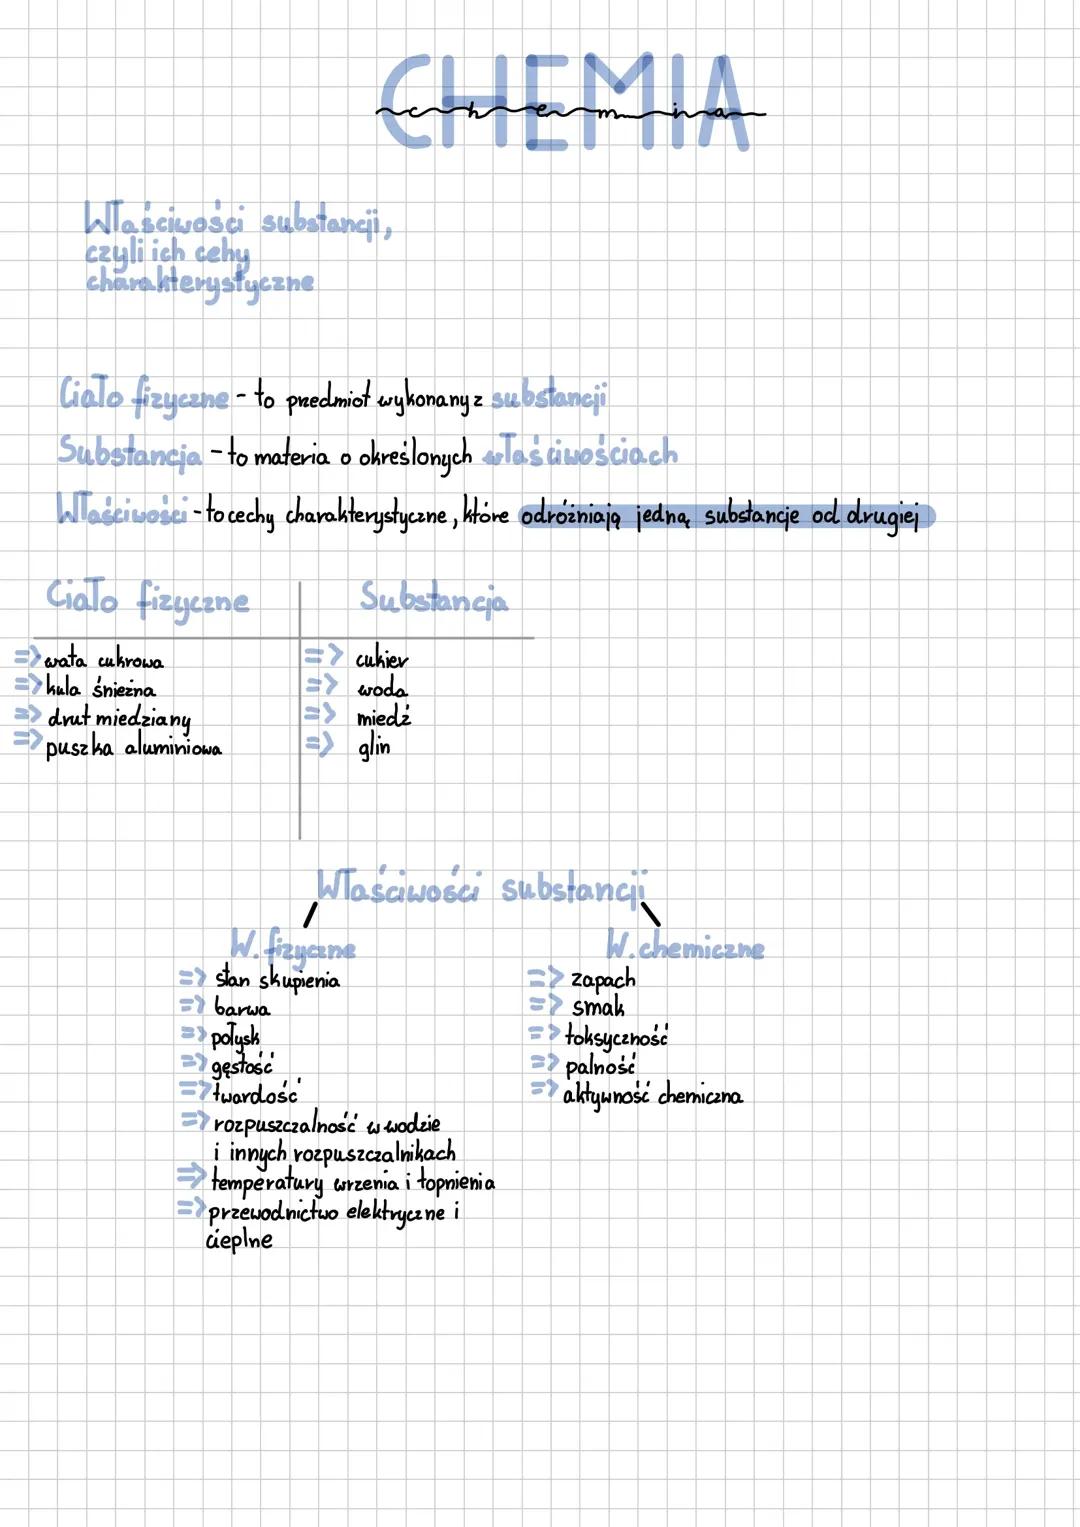 CHEMIA
chemia
Właściwości substancji,
czyli ich cehy
charakterystyczne
Ciało fizyczne - to przedmiot wykonany z substancji
Substancja - to materia o określonych właściwościach
Właściwości - to cechy charakterystyczne, które odróżniają jedną substancje od drugiej
Ciało fizyczne Substancja
=> wata cukrowa => cukier
=> kula śnieżna => woda
=> drut miedziany => miedź
=> puszka aluminiowa => glin
Właściwości substancji
W. fizyczne W. chemiczne
=> stan skupienia => zapach
=> barwa => smak
=> połysk => toksyczność
=> gęstość => palność
=> twardość => aktywność chemiczna
=> rozpuszczalność w wodzie
i innych rozpuszczalnikach
=> temperatury wrzenia i topnienia
=> przewodnictwo elektryczne i
cieplne